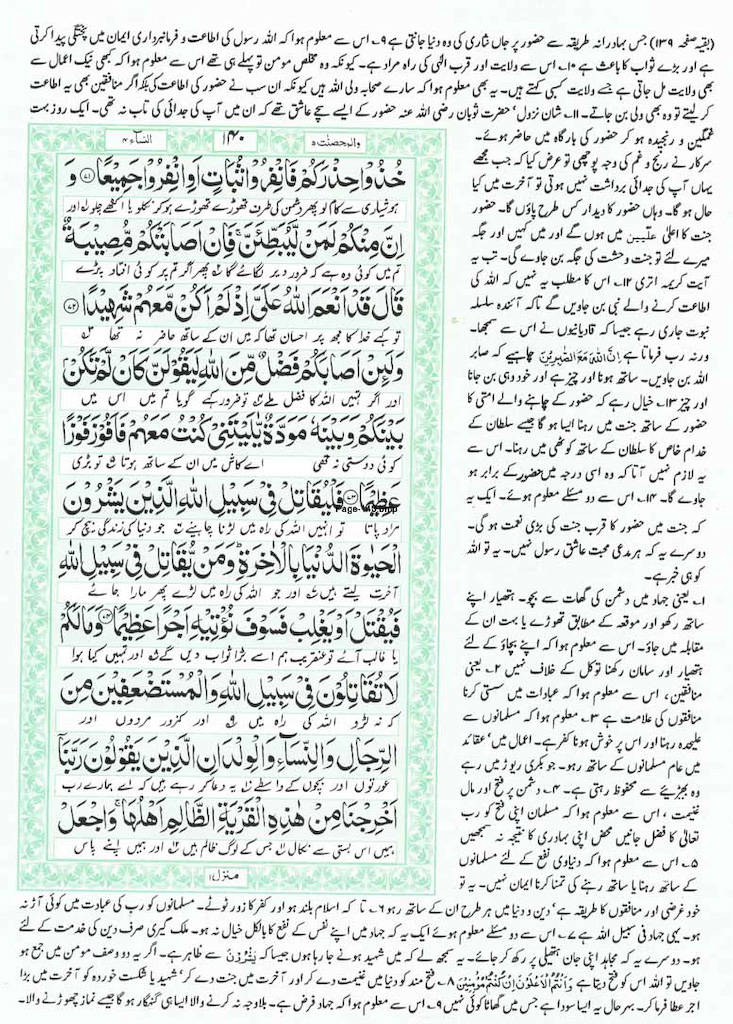 (بقیہ صفحہ ۱۳۹) جس بہادرانہ طریقہ سے حضور پر جاں نثاری کی وہ دنیا جانتی ہے ۹۔ اس سے معلوم ہوا کہ اللہ رسول کی اطاعت و فرمانبرداری ایمان میں پختگی پیدا کرتی
ہے اور بڑے ثواب کا باعث ہے ۱۰۔ اس سے ولایت اور قرب الٰہی کی راہ مراد ہے۔ کیونکہ وہ مخلص مومن تو پہلے ہی تھے اس سے معلوم ہوا کہ کبھی نیک اعمال سے
بھی ولایت مل جاتی ہے جسے ولایت کسبی کہتے ہیں۔ یہ بھی معلوم ہوا کہ سارے صحابہ ولی اللہ ہیں کیونکہ ان سب نے حضور کی اطاعت کی بلکہ اگر منافقین بھی یہ اطاعت
کر لیتے تو وہ بھی ولی بن جاتے۔ ۱۱۔ شان نزول، حضرت ثوبان رضی اللہ عنہ حضور کے ایسے سچے عاشق تھے کہ ان میں آپ کی جدائی کی تاب نہ تھی۔ ایک روز بہت
غمگین و رنجیدہ ہو کر حضور کی بارگاہ میں حاضر ہوئے۔
سرکار نے رنج و غم کی وجہ پوچھی تو عرض کیا کہ جب مجھے
یہاں آپ کی جدائی برداشت نہیں ہوتی تو آخرت میں کیا
حال ہو گا۔ وہاں حضور کا دیدار کس طرح پاؤں گا۔ حضور
جنت کا اعلیٰ علّیین میں ہوں گے اور میں کہیں اور جگہ
میرے لئے تو جنت وحشت کی جگہ بن جاوے گی۔ تب یہ
آیت کریمہ اتری ۱۲۔ اس کا مطلب یہ نہیں کہ اللہ کی
اطاعت کرنے والے نبی بن جاویں گے تاکہ آئندہ سلسلہ
نبوت جاری رہے جیسا کہ قادیانیوں نے اس سے سمجھا۔
ورنہ رب فرماتا ہے اِنَّ اللّٰہَ مَعَ الصّٰبِرِیْنَ چاہیے کہ صابر
اللہ بن جاویں۔ ساتھ ہونا اور چیز ہے اور خود وہی بن جانا
اور چیز ۱۳۔ خیال رہے کہ حضور کے چاہنے والے امتی کا
حضور کے ساتھ جنت میں رہنا ایسا ہو گا جیسے سلطان کے
خدام خاص کا سلطان کے ساتھ کوٹھی میں رہنا۔ اس سے
یہ لازم نہیں آتا کہ وہ اسی درجہ میں حضور کے برابر ہو
جاوے گا۔ ۱۴۔ اس سے دو مسئلے معلوم ہوئے۔ ایک یہ
کہ جنت میں حضور کا قرب جنت کی بڑی نعمت ہو گی۔
دوسرے یہ کہ ہر مدعی محبت عاشق رسول نہیں۔ یہ تو اللہ
کو ہی خبر ہے۔
۱۔ یعنی جہاد میں دشمن کی گھات سے بچو۔ ہتھیار اپنے
ساتھ رکھو اور موقعہ کے مطابق تھوڑے یا بہت ان کے
مقابلہ میں جاؤ۔ اس سے معلوم ہوا کہ اپنے بچاؤ کے لئے
ہتھیار اور سامان رکھنا توکل کے خلاف نہیں ۲۔ یعنی
منافقین، اس سے معلوم ہوا کہ عبادات میں سستی کرنا
منافقوں کی علامت ہے ۳۔ معلوم ہوا کہ مسلمانوں سے
علیحدہ رہنا اور اس پر خوش ہونا کفر ہے۔ اعمال میں، عقائد
میں عام مسلمانوں کے ساتھ رہو۔ جو بکری ریوڑ میں رہے
وہ بھیڑیئے سے محفوظ رہتی ہے۔ ۴۔ دشمن پر فتح اور مال
غنیمت، اس سے معلوم ہوا کہ مسلمان اپنی فتح کو رب
تعالیٰ کا فضل جانیں محض اپنی بہادری کا نتیجہ نہ سمجھیں
۵۔ اس سے معلوم ہوا کہ دنیاوی نفع کے لئے مسلمانوں
کے ساتھ رہنا یا ساتھ رہنے کی تمنا کرنا ایمان نہیں۔ یہ تو
والمحصنٰت ۵
۱۴۰
النسآء ۴
خُذُوْا حِذْرَكُمْ فَانْفِرُوْا ثُبَاتٍ اَوِ انْفِرُوْا جَمِيْعًا ۝۷۱ وَ
ہوشیاری سے کام لو پھر دشمن کی طرف تھوڑے تھوڑے ہو کر نکلو یا اکٹھے چلو اور
اِنَّ مِنْكُمْ لَمَنْ لَّيُبَطِّئَنَّ ۚ فَاِنْ اَصَابَتْكُمْ مُّصِيْبَةٌ
تم میں کوئی وہ ہے کہ ضرور دیر لگائے گا پھر اگر تم پر کوئی افتاد پڑے
قَالَ قَدْ اَنْعَمَ اللّٰهُ عَلَيَّ اِذْ لَمْ اَكُنْ مَّعَهُمْ شَهِيْدًا ۝۷۲
تو کہے خدا کا مجھ پر احسان تھا کہ میں ان کے ساتھ حاضر نہ تھا
وَلَئِنْ اَصَابَكُمْ فَضْلٌ مِّنَ اللّٰهِ لَيَقُوْلَنَّ كَاَنْ لَّمْ تَكُنْ
اور اگر تمہیں اللہ کا فضل ملے تو ضرور کہے گویا تم میں اس میں
بَيْنَكُمْ وَبَيْنَهٗ مَوَدَّةٌ يّٰلَيْتَنِيْ كُنْتُ مَعَهُمْ فَاَفُوْزَ فَوْزًا
کوئی دوستی نہ تھی اے کاش میں ان کے ساتھ ہوتا تو بڑی
عَظِيْمًا ۝۷۳ فَلْيُقَاتِلْ فِيْ سَبِيْلِ اللّٰهِ الَّذِيْنَ يَشْرُوْنَ
مراد پاتا تو انہیں اللہ کی راہ میں لڑنا چاہیئے جو دنیا کی زندگی بیچ کر
الْحَيٰوةَ الدُّنْيَا بِالْاٰخِرَةِ ؕ وَمَنْ يُّقَاتِلْ فِيْ سَبِيْلِ اللّٰهِ
آخرت لیتے ہیں اور جو اللہ کی راہ میں لڑے پھر مارا جائے
فَيُقْتَلْ اَوْ يَغْلِبْ فَسَوْفَ نُؤْتِيْهِ اَجْرًا عَظِيْمًا ۝۷۴ وَمَا لَكُمْ
یا غالب آئے تو عنقریب ہم اسے بڑا ثواب دیں گے اور تمہیں کیا ہوا
لَا تُقَاتِلُوْنَ فِيْ سَبِيْلِ اللّٰهِ وَالْمُسْتَضْعَفِيْنَ مِنَ
کہ نہ لڑو اللہ کی راہ میں اور کمزور مردوں اور
الرِّجَالِ وَالنِّسَآءِ وَالْوِلْدَانِ الَّذِيْنَ يَقُوْلُوْنَ رَبَّنَآ
عورتوں اور بچوں کے واسطے یہ دعا کر رہے ہیں کہ اے ہمارے رب
اَخْرِجْنَا مِنْ هٰذِهِ الْقَرْيَةِ الظَّالِمِ اَهْلُهَا ۚ وَاجْعَلْ
ہمیں اس بستی سے نکال جس کے لوگ ظالم ہیں اور ہمیں اپنے پاس
منزل ۱
خود غرضی اور منافقوں کا طریقہ ہے، دین و دنیا میں ہر طرح ان کے ساتھ رہو ۶۔ تا کہ اسلام بلند ہو اور کفر کا زور ٹوٹے۔ مسلمانوں کو رب کی عبادت میں کوئی آڑ نہ
ہو۔ یہی جہاد فی سبیل اللہ ہے ۷۔ اس سے دو مسئلے معلوم ہوئے ایک یہ کہ جہاد میں اپنے نفس کے نفع کا بالکل خیال نہ ہو۔ ملک گیری صرف دین کی خدمت کے لئے
ہو۔ دوسرے یہ کہ مجاہد اپنی جان ہتھیلی پر رکھ کر جائے۔ یہ سمجھ لے کہ میں شہید ہونے جا رہا ہوں جیسا کہ یَشْرُوْنَ سے ظاہر ہے۔ اگر یہ دو وصف مومن میں جمع ہو
جاویں تو اللہ اس کو فتح دیتا ہے وَاَنْتُمُ الْاَعْلَوْنَ اِنْ کُنْتُمْ مُّؤْمِنِیْنَ ۸۔ فتح مند کو دنیا میں غنیمت دے کر اور آخرت میں جنت دے کر، شہید یا شکست خوردہ کو آخرت میں بڑا
اجر عطا فرما کر۔ بہرحال یہ ایسا سودا ہے جس میں گھاٹا کوئی نہیں ۹۔ اس سے معلوم ہوا کہ جہاد فرض ہے۔ بلا وجہ نہ کرنے والا ایسا ہی گنہگار ہو گا جیسے نماز چھوڑنے والا۔